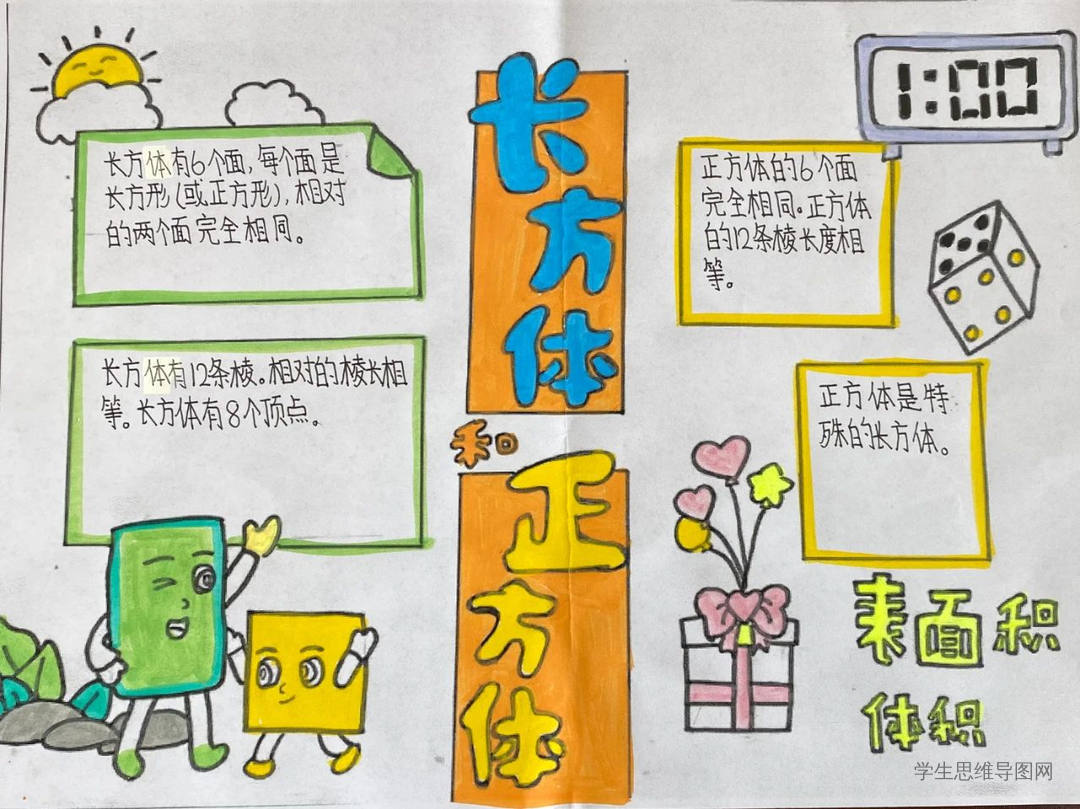 长方体
和
正方体
长方体有6个面,每个面是
长方形(或正方形),相对
的两个面完全相同。
长方体有12条棱。相对的棱长相
等。长方体有8个顶点。
1:00
正方体的6个面
完全相同。正方体
的12条棱长度相
等。
正方体是特
殊的长方体。
表面积
体积
学生思维导图网